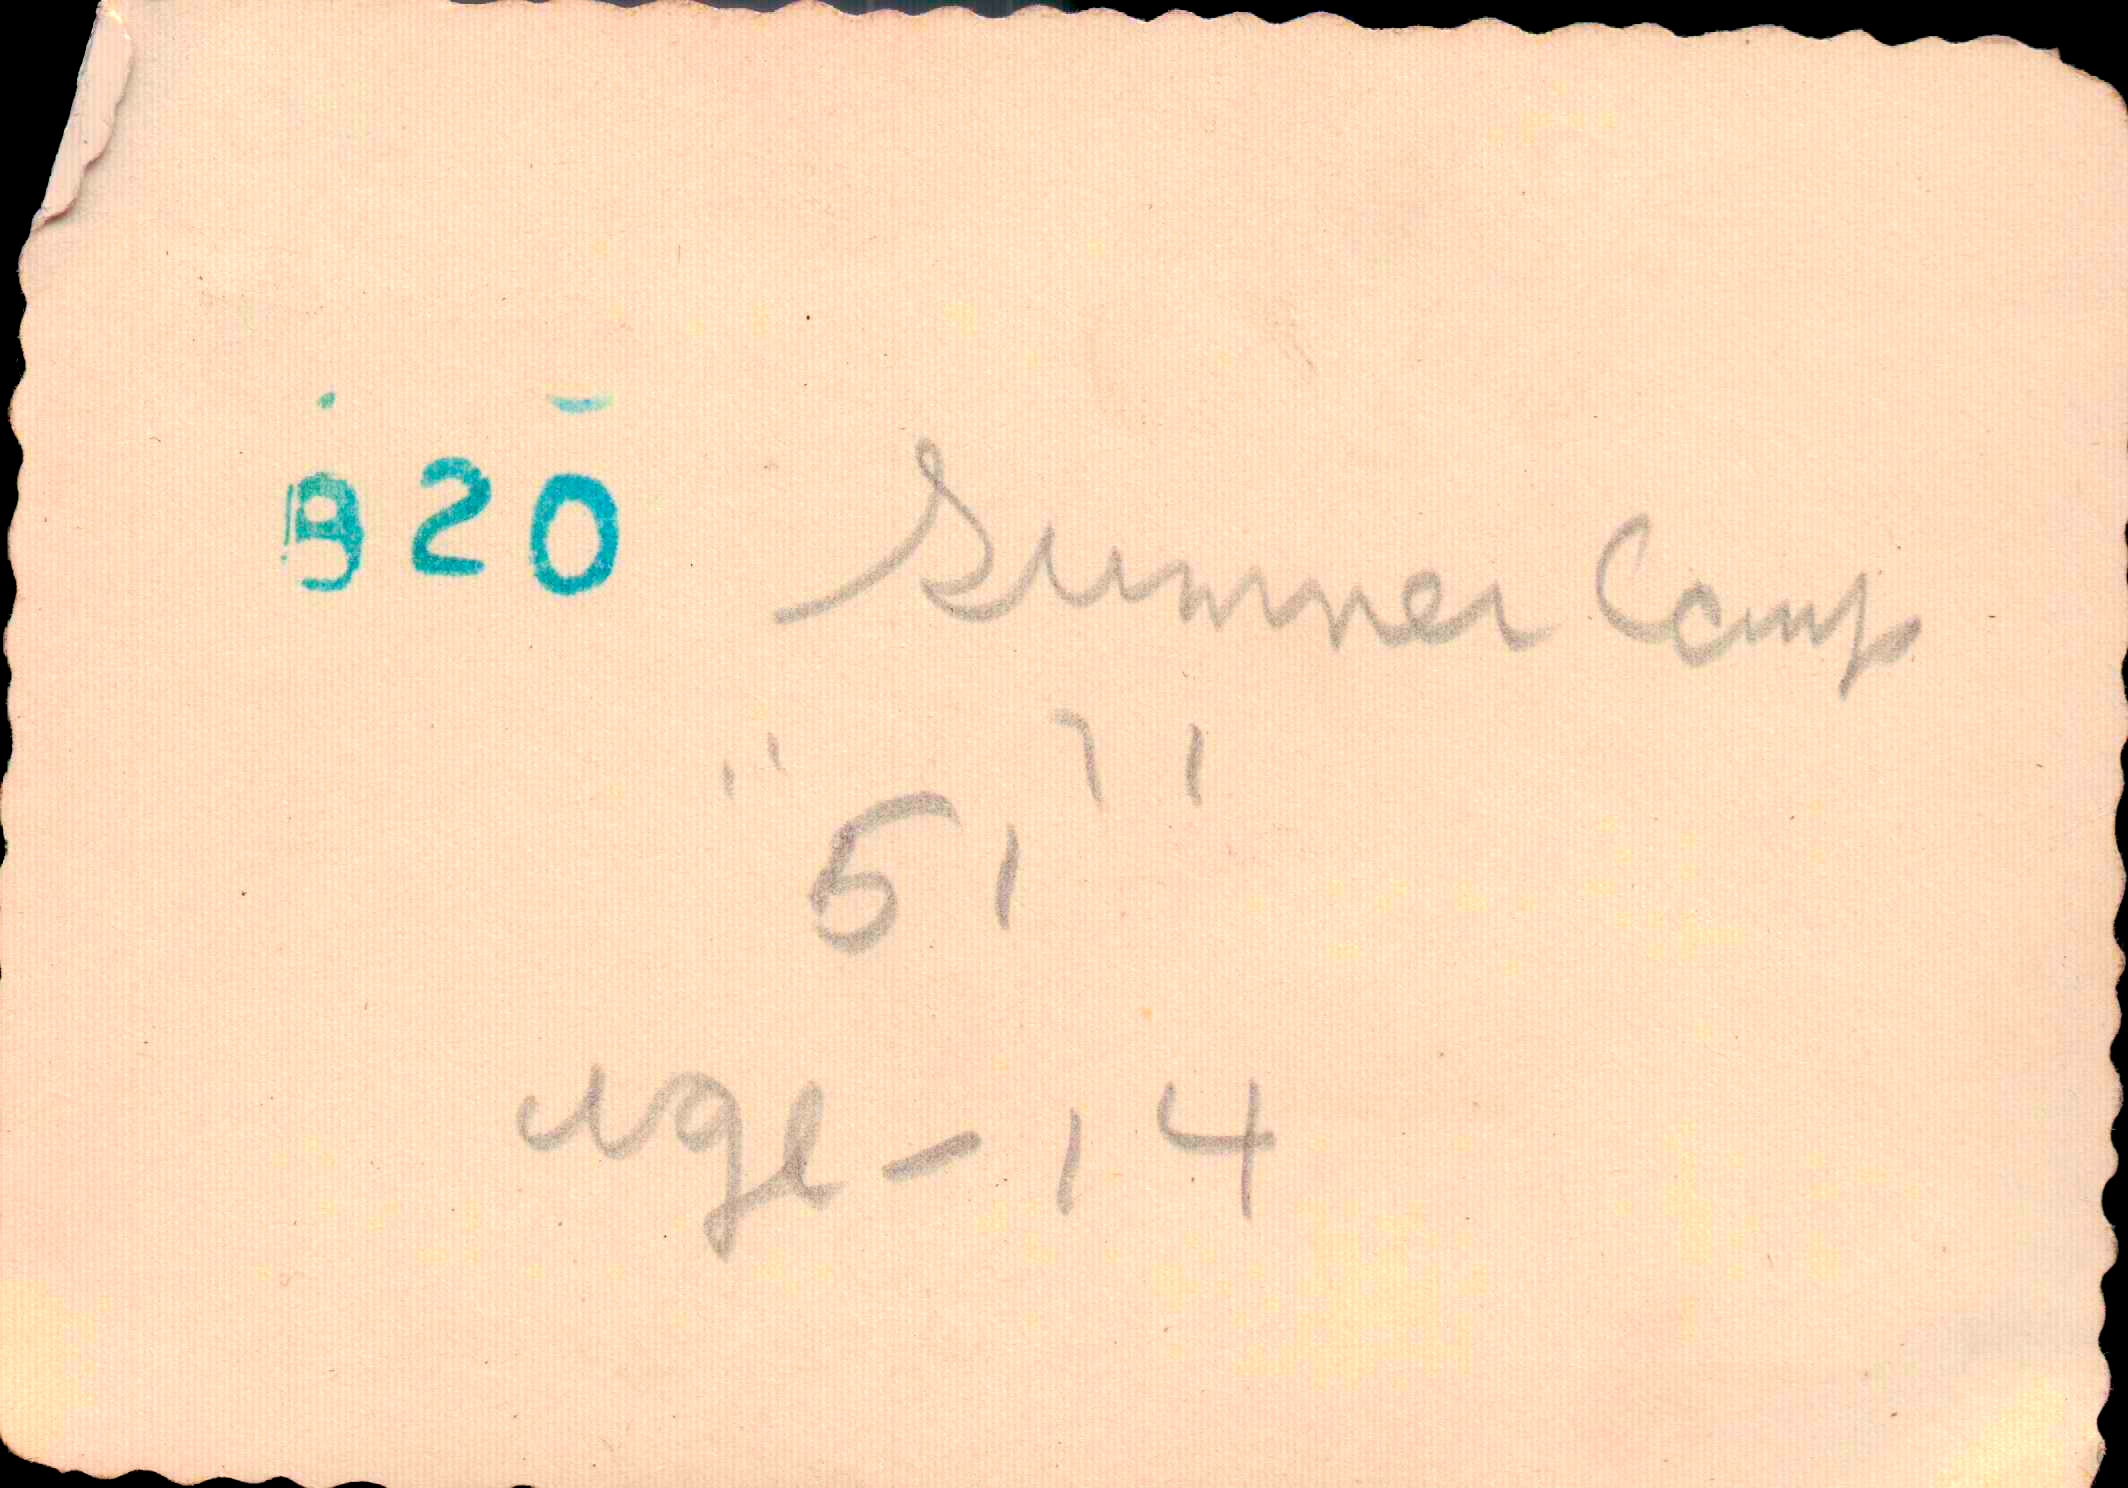 920 Summer Camp
"51"
age - 14